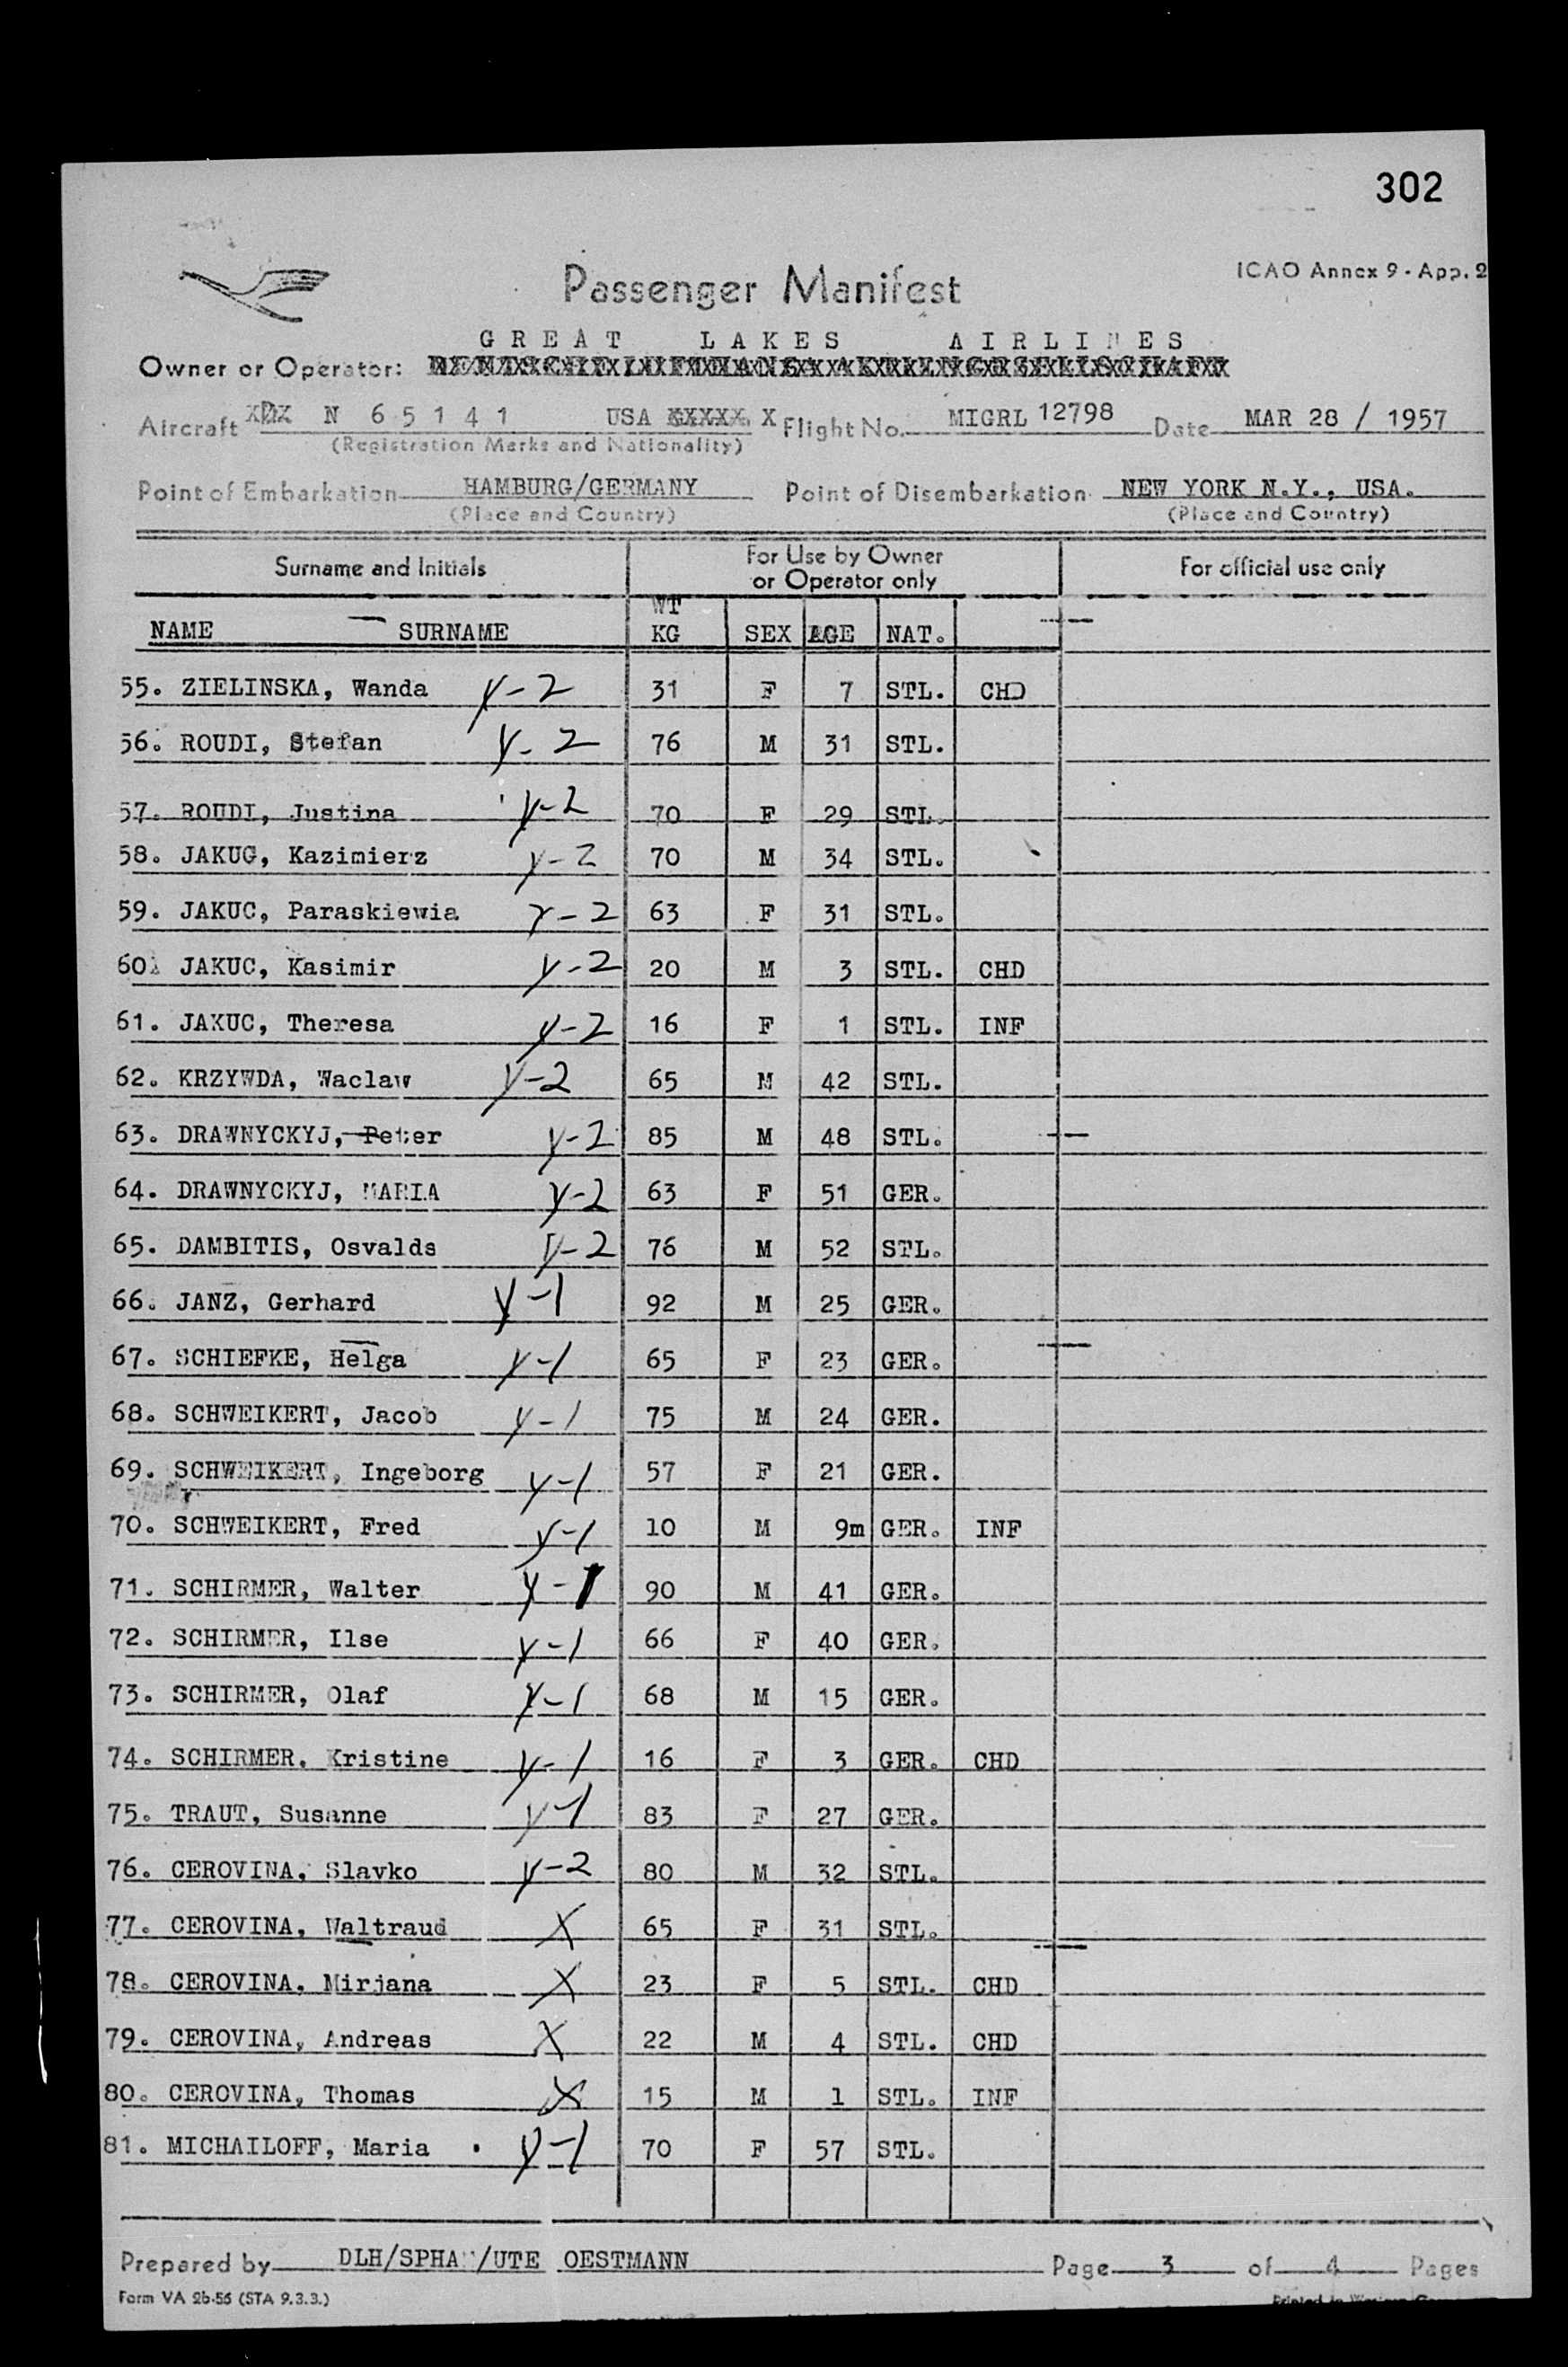 302
ICAO Annex 9 - App. 2
Passenger Manifest
GREAT LAKES AIRLINES
Owner or Operator:
Aircraft N 65141 USA Flight No. MIGRL 12798 Date MAR 28 / 1957
(Registration Marks and Nationality)
Point of Embarkation HAMBURG/GERMANY Point of Disembarkation NEW YORK N.Y., USA.
(Place and Country) (Place and Country)
Surname and Initials For Use by Owner or Operator only For official use only
NAME SURNAME WT KG SEX AGE NAT.
55. ZIELINSKA, Wanda Y-2 31 F 7 STL. CHD
56. ROUDI, Stefan Y-2 76 M 31 STL.
57. ROUDI, Justina Y-2 70 F 29 STL.
58. JAKUG, Kazimierz Y-2 70 M 34 STL.
59. JAKUC, Paraskiewia Y-2 63 F 31 STL.
60. JAKUC, Kasimir Y-2 20 M 3 STL. CHD
61. JAKUC, Theresa Y-2 16 F 1 STL. INF
62. KRZYWDA, Waclaw Y-2 65 M 42 STL.
63. DRAWNYCKYJ, Peter Y-2 85 M 48 STL.
64. DRAWNYCKYJ, MARIA Y-2 63 F 51 GER.
65. DAMBITIS, Osvalds Y-2 76 M 52 STL.
66. JANZ, Gerhard Y-1 92 M 25 GER.
67. SCHIEFKE, Helga Y-1 65 F 23 GER.
68. SCHWEIKERT, Jacob Y-1 75 M 24 GER.
69. SCHWEIKERT, Ingeborg Y-1 57 F 21 GER.
70. SCHWEIKERT, Fred Y-1 10 M 9m GER. INF
71. SCHIRMER, Walter Y-1 90 M 41 GER.
72. SCHIRMER, Ilse Y-1 66 F 40 GER.
73. SCHIRMER, Olaf Y-1 68 M 15 GER.
74. SCHIRMER, Kristine Y-1 16 F 3 GER. CHD
75. TRAUT, Susanne Y-1 83 F 27 GER.
76. CEROVINA, Slavko Y-2 80 M 32 STL.
77. CEROVINA, Waltraud X 65 F 31 STL.
78. CEROVINA, Mirjana X 23 F 5 STL. CHD
79. CEROVINA, Andreas X 22 M 4 STL. CHD
80. CEROVINA, Thomas X 15 M 1 STL. INF
81. MICHAILOFF, Maria Y-1 70 F 57 STL.
Prepared by DLH/ /UTE OESTMANN Page 3 of 4 Pages
Form VA 2b-56 (STA 9.3.3.) Printed in